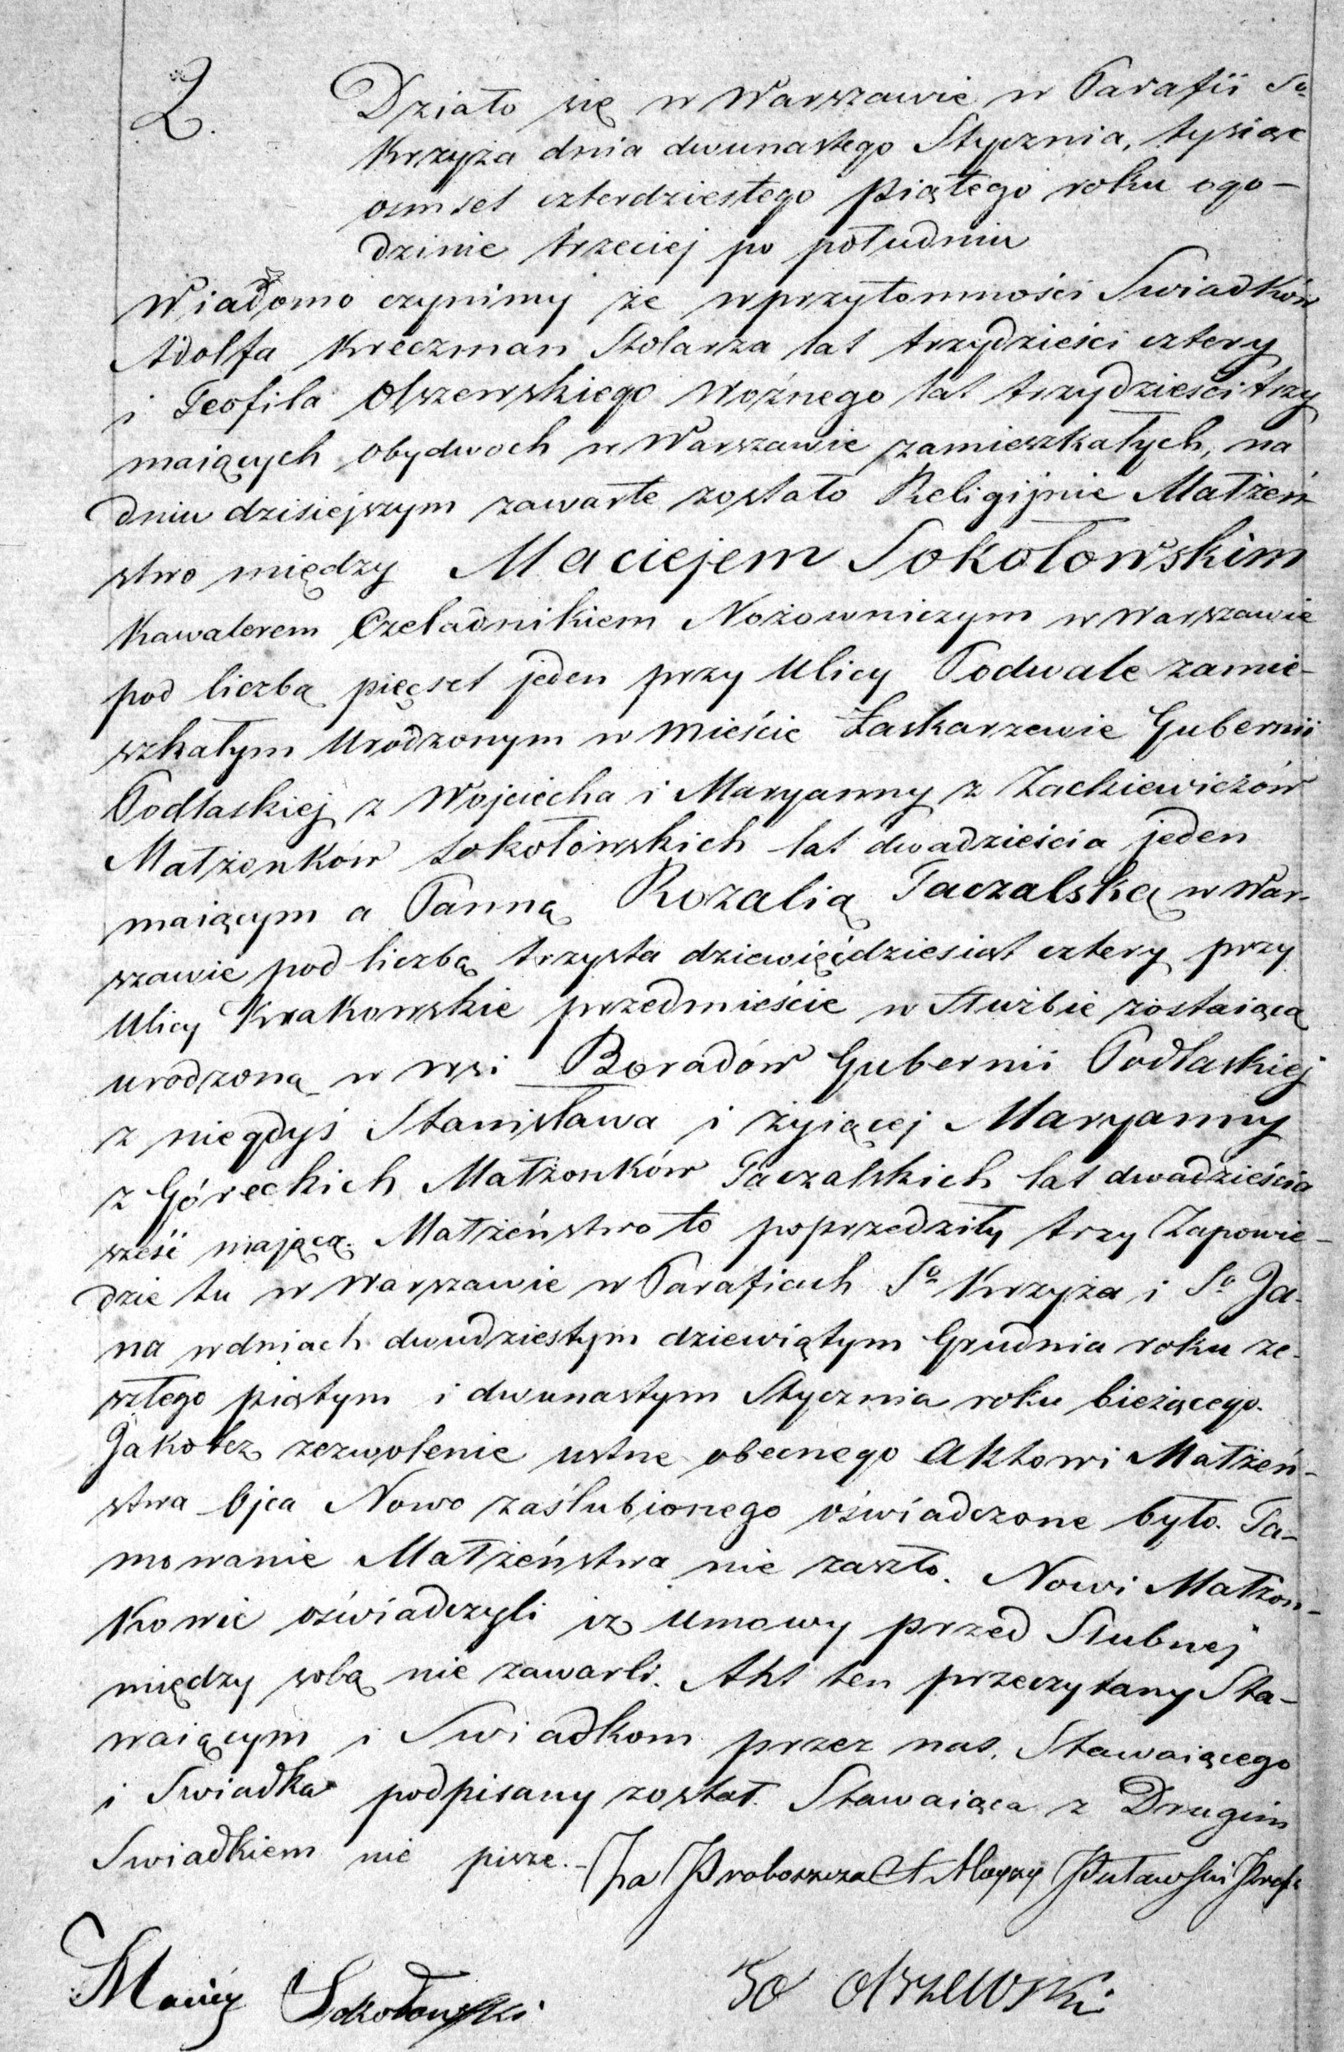 2.
Działo się w Warszawie w Parafii So
Krzyża dnia dwunastego Stycznia, tysiąc
osmset czterdziestego piątego roku ogo-
dzinie trzeciej po południu
Wiadomo czynimy że wprzytomności Swiadków
Adolfa Kreczman Stolarza lat trzydzieści cztery
i Teofila Olszewskiego Woźnego lat trzydzieści trzy
maiących obydwoch w Warszawie zamieszkałych, na
dniu dzisiejszym zawarte zostało Religijnie Małżeń
stwo między Maciejem Sokołowskim
Kawalerem Czeladnikiem Nożowniczym w Warszawie
pod liczbą pięcset jeden przy Ulicy Podwale zamie-
szkałym Urodzonym w Mieście Łaskarzewie Gubernii
Podlaskiej z Wojciecha i Maryanny z Zackiewiczów
Małżonków Sokołowskich lat dwadzieścia jeden
maiącym a Panną Rozalią Taczalską w War-
szawie pod liczbą trzysta dziewięćdziesiąt cztery przy
Ulicy Krakowskie przedmieście w Służbie zostaiącą
urodzoną w wsi Boradów Gubernii Podlaskiej
z niegdyś Stanisława i żyiącej Maryanny
z Góreckich Małżonków Taczalskich lat dwadzieścia
sześć mającą. Małżeństwo to poprzedziły trzy Zapowie-
dzie tu w Warszawie w Parafiach So Krzyża i So Ja-
na wdniach dwudziestym dziewiątym Grudnia roku ze-
szłego piątym i dwunastym Stycznia roku bieżącego.
Jakotez zezwolenie ustne obecnego Aktowi Małżeń-
stwa Ojca Nowo zaślubionego oświadczone było. Ta-
mowanie Małżeństwa nie zaszło. Nowi Małżon-
kowie oświadczyli iz Umowy przed Slubnej
między sobą nie zawarli. Akt ten przeczytany Sta-
waiącym i Swiadkom przez nas, Stawaiącego
i Swiadka podpisany został. Stawaiąca z Drugim
Swiadkiem nie pisze. - Za Proboszcza Puławski
Maciey Sokołowski
Olszewski